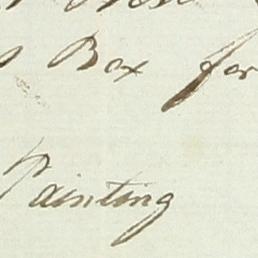 Box for
Painting